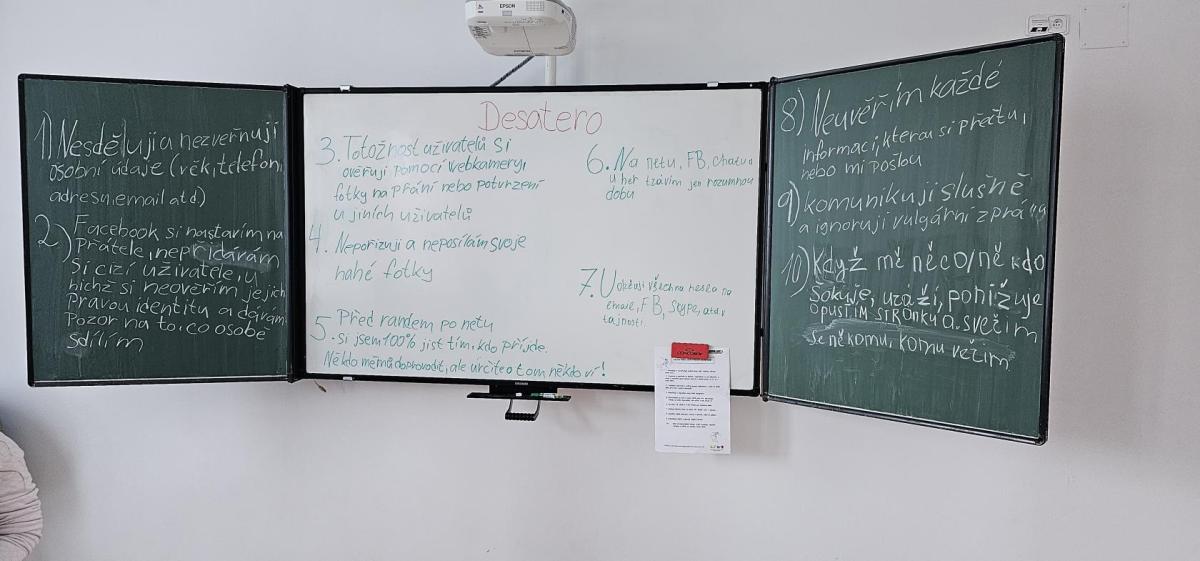 EPSON
1) Nesděluji a nezveřňuji
osobní údaje (věk, telefon,
adresu, email atd.)
2) Facebook si nastavím na
Přátele, nepřidávám
si cizí uživatele, u
nichž si neověřím jejich
Pravou identitu a dávám
Pozor na to, co o sobě
sdílím
Desatero
3. Totožnost uživatelů si
ověřuji pomocí webkamery,
fotky na přání nebo potvrzení
u jiních uživatelů
4. Nepořizuji a neposílám svoje
nahé fotky
5. Před randem po netu
si jsem 100% jist tím, kdo příjde.
Někdo mě může doprovodit, ale určitě o tom někdo ví!
6. Na netu, FB, chatu a
u her trávím jen rozumnou
dobu
7. Udržuji všechna hesla na
email, FB, Skype, atd v
tajnosti.
8) Neuvěřím každé
informaci, kterou si přečtu,
nebo mi pošlou
9) komunikuji slušně
a ignoruji vulgární zprávy
10) Když mě něco/někdo
Šokuje, uráží, ponižuje
opustím stránku a svěřím
se někomu, komu věřím